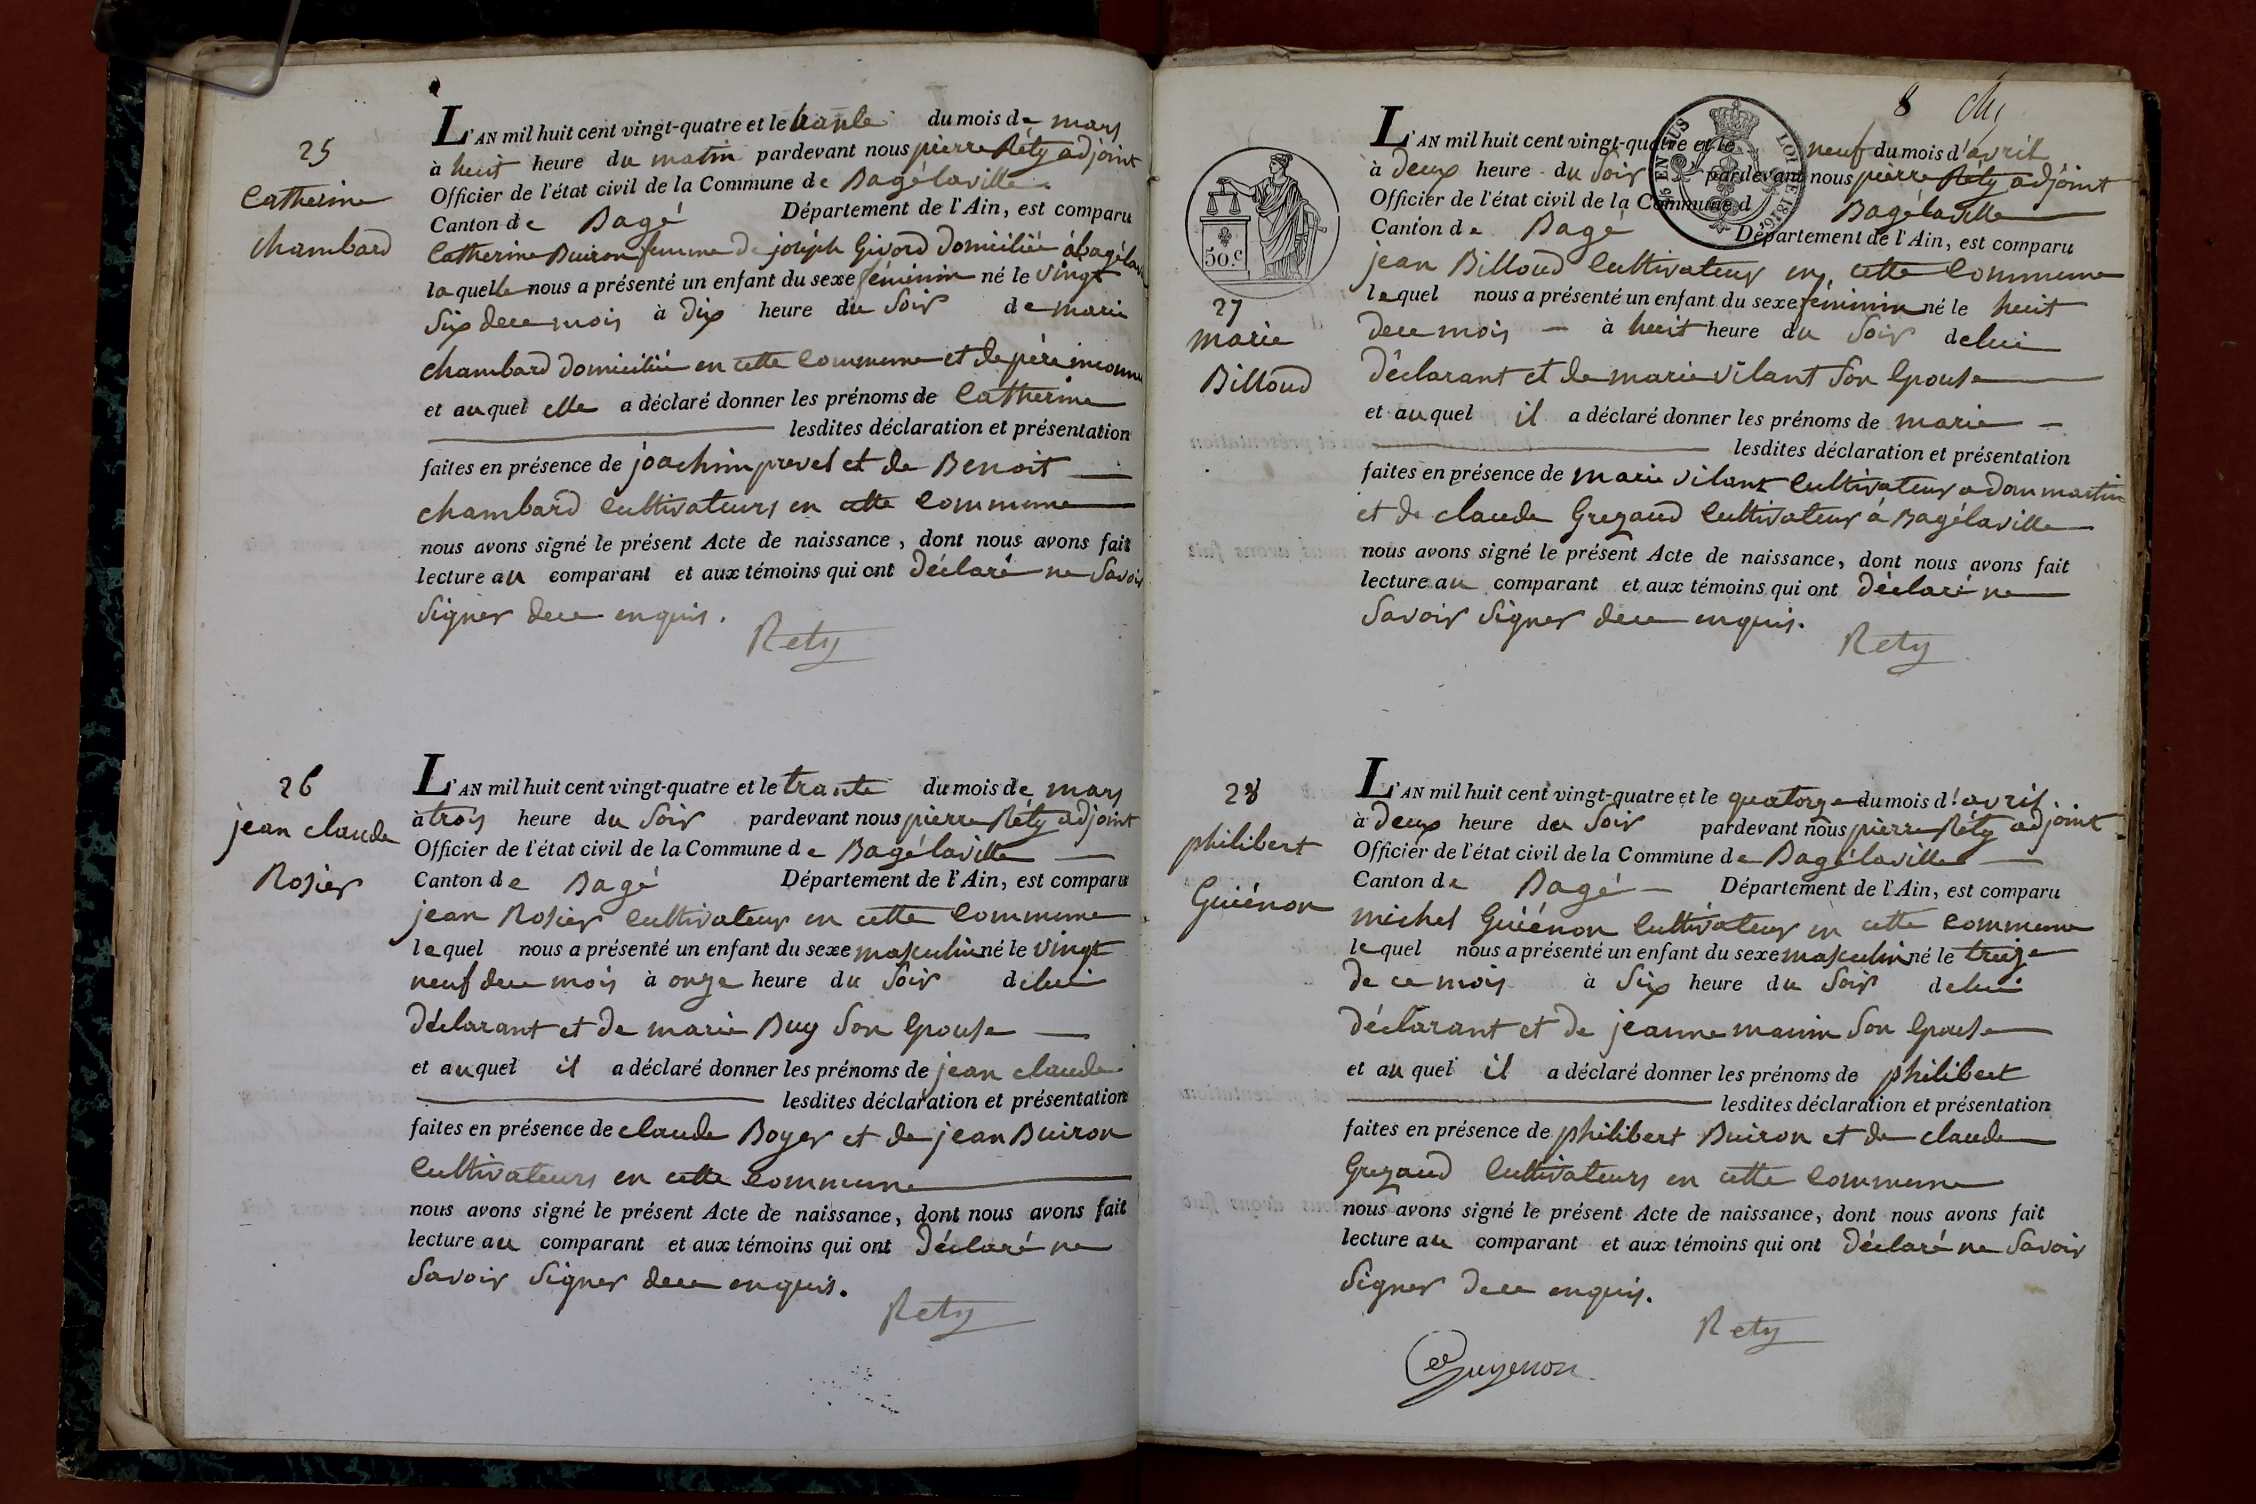 25
Catherine
chambard
L'AN mil huit cent vingt-quatre et le trante du mois de mars
à huit heure du matin pardevant nous pierre Réty adjoint
Officier de l'état civil de la Commune de Bagélaville
Canton de Bagé Département de l'Ain, est comparu
Catherine Buiron femme de joséph Givord domiciliée à bagélav
laquelle nous a présenté un enfant du sexe féminin né le vingt
Six dece mois à dix heure du Soir de marie
chambard domiciliée en cette commune et de père inconnu
et auquel elle a déclaré donner les prénoms de Catherine
lesdites déclaration et présentation
faites en présence de joachim prevel et de Benoit
chambard Cultivateurs en cette commune
nous avons signé le présent Acte de naissance, dont nous avons fait
lecture au comparant et aux témoins qui ont déclaré ne Savoir
Signer dece enquis.
Rety
26
jean claude
Rosier
L'AN mil huit cent vingt-quatre et le trante du mois de mars
à trois heure du Soir pardevant nous pierre Réty adjoint
Officier de l'état civil de la Commune de Bagélaville
Canton de Bagé Département de l'Ain, est comparu
jean Rosier Cultivateur en cette Commune
lequel nous a présenté un enfant du sexe masculin né le vingt
neuf dece mois à onze heure du Soir delui
déclarant et de marie Buy Son Epouse
et auquel il a déclaré donner les prénoms de jean claude
lesdites déclaration et présentation
faites en présence de claude Boyer et de jean Buiron
Cultivateurs en cette Commune
nous avons signé le présent Acte de naissance, dont nous avons fait
lecture au comparant et aux témoins qui ont déclaré ne
Savoir Signer dece enquis.
Rety
8
50.C
LOI DE 1816
27
marie
Billoud
L'AN mil huit cent vingt-quatre et le neuf du mois d'avril
à deux heure du Soir pardevant nous pierre Réty adjoint
Officier de l'état civil de la Commune d Bagélaville
Canton de Bagé Département de l'Ain, est comparu
jean Billoud Cultivateur en cette Commune
lequel nous a présenté un enfant du sexe féminin né le huit
dece mois à huit heure du Soir delui
déclarant et de marie vilant Son Epouse
et auquel il a déclaré donner les prénoms de marie
lesdites déclaration et présentation
faites en présence de marie vilant Cultivateur a dommartin
et de claude Grezaud Cultivateur à Bagélaville
nous avons signé le présent Acte de naissance, dont nous avons fait
lecture au comparant et aux témoins qui ont déclaré ne
Savoir Signer dece enquis.
Rety
28
philibert
Guiénon
L'AN mil huit cent vingt-quatre et le quatorze du mois d'avril
à deux heure du Soir pardevant nous pierre Réty adjoint
Officier de l'état civil de la Commune de Bagélaville
Canton de Bagé Département de l'Ain, est comparu
michel Guiénon Cultivateur en cette Commune
lequel nous a présenté un enfant du sexe masculin né le treize
de ce mois à Six heure du Soir delui
déclarant et de jeanne manin Son Epouse
et auquel il a déclaré donner les prénoms de philibert
lesdites déclaration et présentation
faites en présence de philibert Buiron et de claude
Grezaud Cultivateurs en cette Commune
nous avons signé le présent Acte de naissance, dont nous avons fait
lecture au comparant et aux témoins qui ont déclaré ne Savoir
Signer dece enquis.
Rety
Guyenon